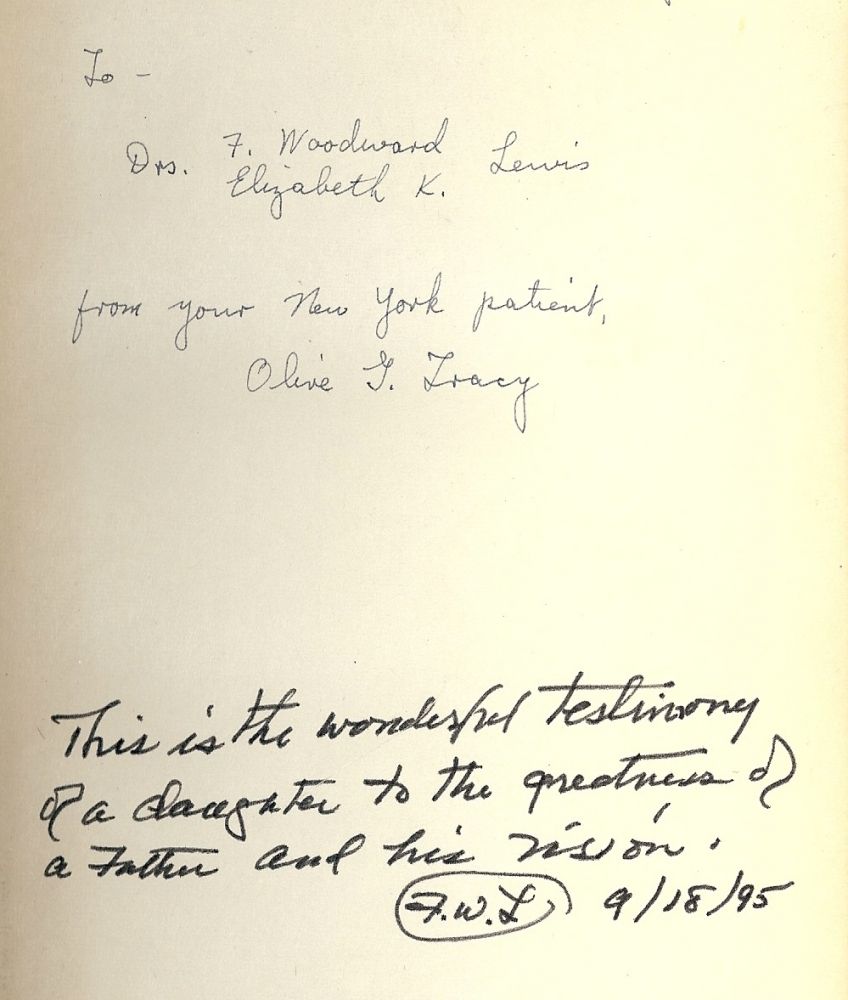 To -
Drs. F. Woodward Lewis
Elizabeth K.
from your New York patient,
Olive G. Tracy
This is the wonderful testimony
of a daughter to the greatness of
a Father and his vision.
F.W.L 9/18/95